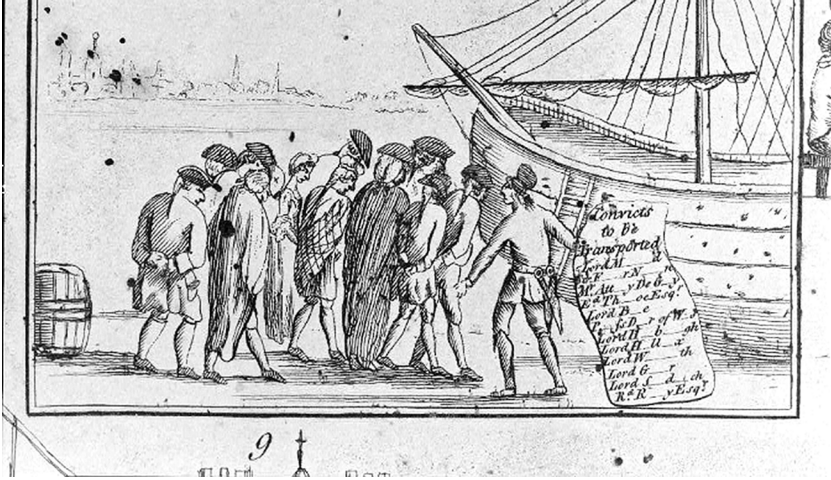 Convicts
to be
Transported
Lord M d
Sr F r N n
Mr Au y De G y
Ed Th oe Esqr
Lord B e
Ps Ss D r of W s
Lord H b gh
Lord H ll x
Lord W th
Lord G r
Lord S d ch
Rd R y Esqr
9